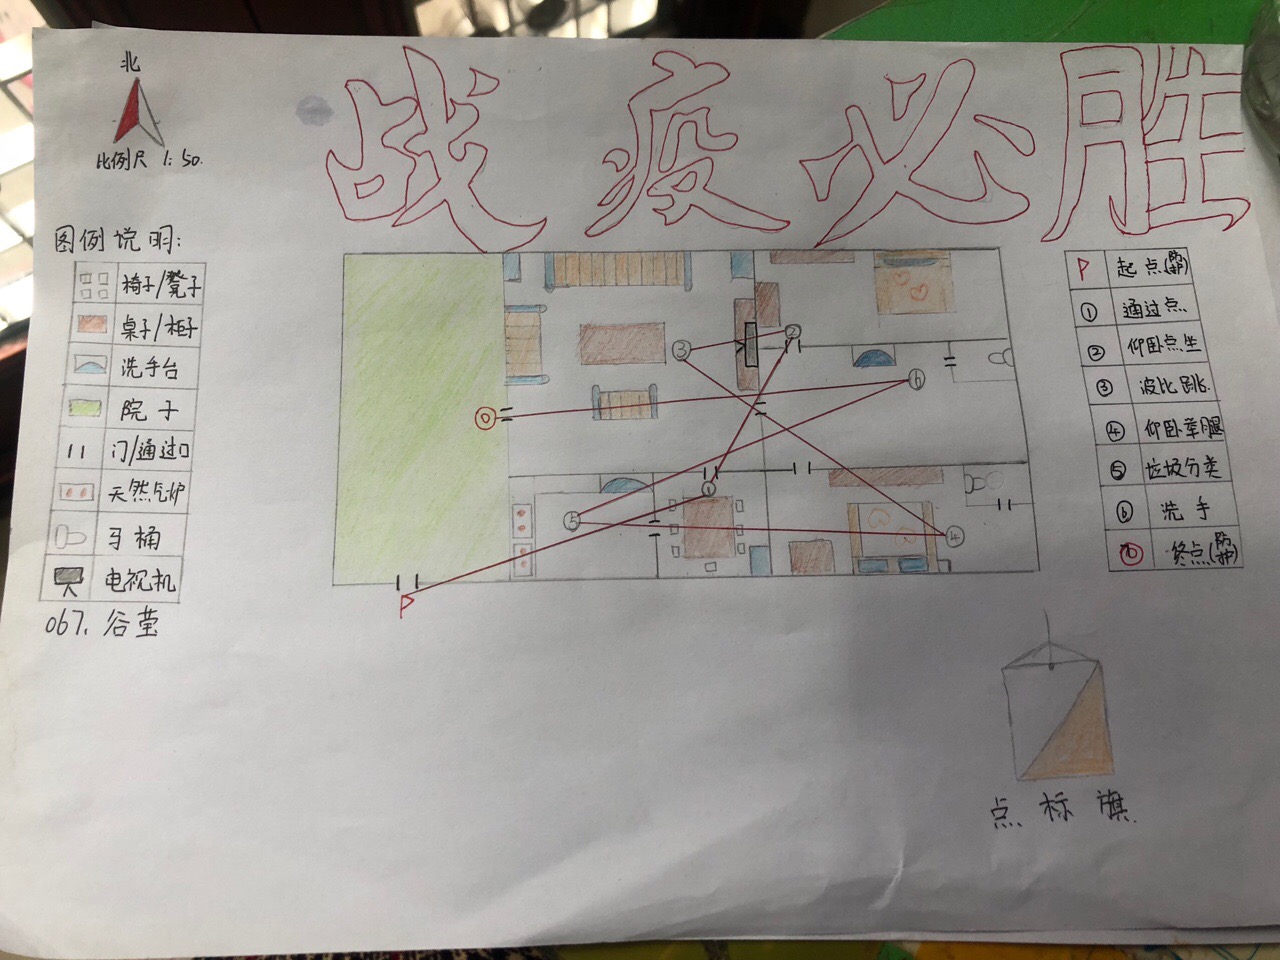 北
比例尺 1:50.
战疫必胜
图例说明:
椅子/凳子
桌子/柜子
洗手台
院子
门/通过口
天然气炉
马桶
电视机
067. 谷莹
P 起点(防护)
① 通过点
② 仰卧点生
③ 波比跳
④ 仰卧举腿
⑤ 垃圾分类
⑥ 洗手
终点(防护)
②
③
⑥
①
⑤
④
P
点标旗